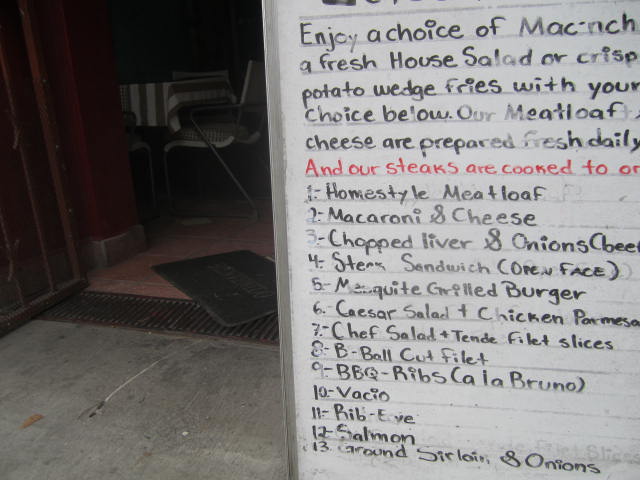 Enjoy a choice of Mac-nch
a fresh House Salad or crisp
potato wedge fries with your
choice below. Our Meatloaf
cheese are prepared fresh daily
And our steaks are cooked to or
1- Homestyle Meatloaf
2- Macaroni & Cheese
3- Chopped liver & Onions (beef
4- Steak Sandwich (OPEN FACE)
5- Mesquite Grilled Burger
6- Caesar Salad + Chicken Parmesa
7- Chef Salad + Tende filet slices
8- B-Ball Cut filet
9- BBQ-Ribs (a la Bruno)
10- Vacio
11- Rib-Eye
12- Salmon
13- Ground Sirloin & Onions